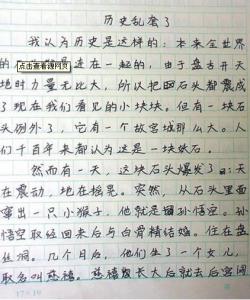 历史乱套了
我认为历史是这样的：本来全世界
点击查看源网页
的是连在一起的，由于盘古开天
地时力量无比大，所以把石头都震成
了现在我们看见的小块块，但有一块石
头例外了，它有一个故宫城那么大。人
们千百年来都认为这是一块石..
然而有一天，这块石头爆发了：天
在震动，地在摇晃。突然，从石头里面
窜出一只小猴子，他就是孙悟空。孙
悟空取经回来后与白骨精结婚。住在盘
丝洞。几个月后，他们生了一个女儿，
取名叫慈禧。慈禧长大后就去后宫闯